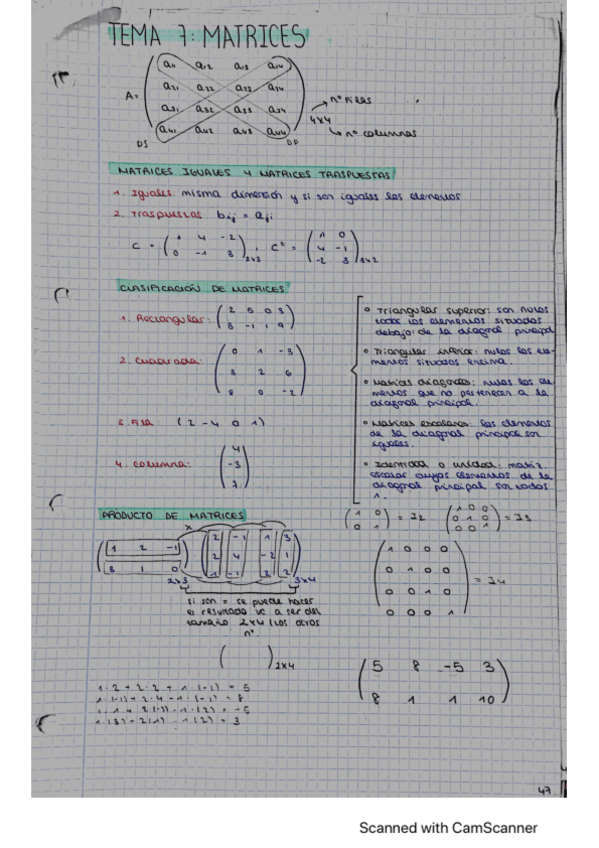 TEMA 7: MATRICES
A=
a11 a12 a13 a14
a21 a22 a23 a24
a31 a32 a33 a34
a41 a42 a43 a44
DS DP
4x4
nº filas
nº columnas
MATRICES IGUALES Y MATRICES TRASPUESTAS
1. Iguales: misma dimensión y si son iguales los elementos
2. Traspuestas bij = aji
C = ( 1 4 -2
0 -1 3 )2x3 ; Ct = ( 1 0
4 -1
-2 3 )3x2
CLASIFICACIÓN DE MATRICES
1. Rectangular:
2. Cuadrada:
0 1 -3
3 2 6
8 0 -2
3. Fila (2 -4 0 1)
4. columna:
4
-3
7
Triangular superior: son nulos
todos los elementos situados
debajo de la diagonal principal
Triangular inferior: nulos los ele-
mentos situados encima.
Matrices diagonales: nulos los ele-
mentos que no pertenecen a la
diagonal principal.
Matrices escalares: los elementos
de la diagonal principal son
iguales.
Identidad o unidad: matriz
escalar cuyos elementos de la
diagonal principal son todos
1.
(1 0
0 1) = I2
(1 0 0
0 1 0
0 0 1) = I3
1 0 0 0
0 1 0 0
0 0 1 0
0 0 0 1
= I4
PRODUCTO DE MATRICES
x
1 2 -1
3 1 0
2x3
2 -1 1 3
2 4 -2 1
1 -1 2 2
3x4
si son = se puede hacer
el resultado va a ser del
tamaño 2x4 (los otros
nº
( )2x4
5 8 -5 3
8 1 1 10
47
Scanned with CamScanner